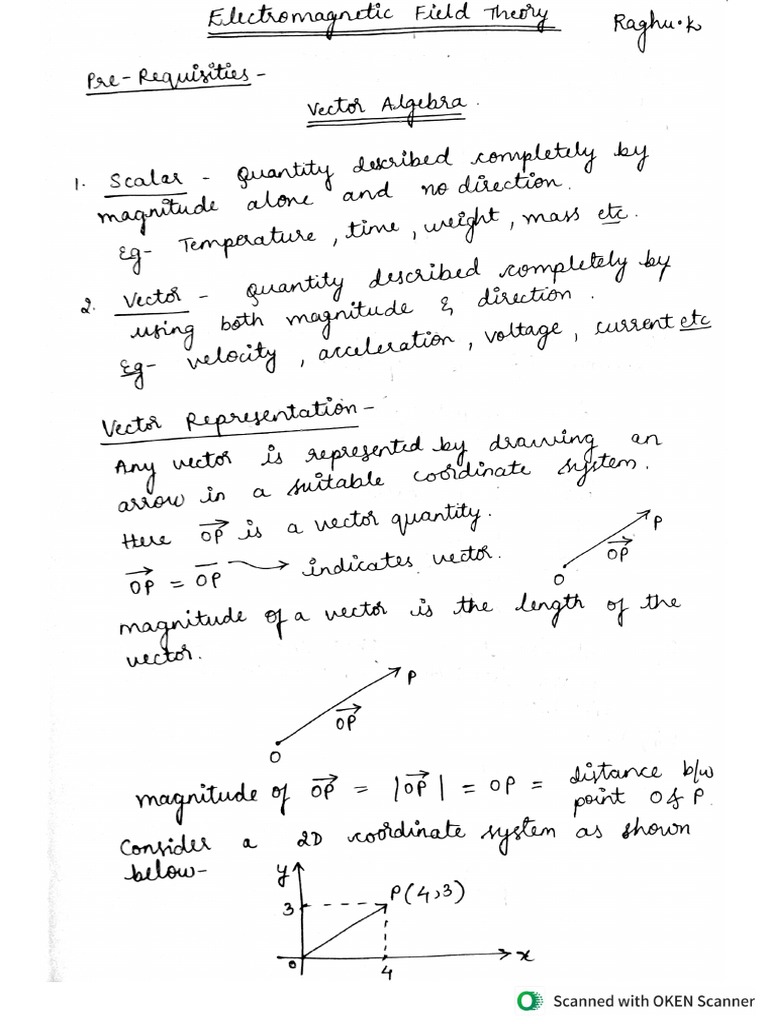 Electromagnetic Field Theory
Raghu.K
Pre-Requisities -
Vector Algebra.
1. Scalar - Quantity described completely by
magnitude alone and no direction.
Eg- Temperature, time, weight, mass etc.
2. Vector - Quantity described completely by
using both magnitude & direction.
Eg- velocity, acceleration, voltage, current etc
Vector Representation -
Any vector is represented by drawing an
arrow in a suitable coordinate system.
Here $\overrightarrow{OP}$ is a vector quantity.
$\overrightarrow{OP} = \overline{OP}$ → indicates vector.
P
$\overrightarrow{OP}$
O
magnitude of a vector is the length of the
vector.
P
$\overrightarrow{OP}$
O
magnitude of $\overrightarrow{OP}$ = $|\overrightarrow{OP}|$ = OP = distance b/w
point O & P.
Consider a 2D coordinate system as shown
below-
y
3
P(4,3)
0
4
x
Scanned with OKEN Scanner